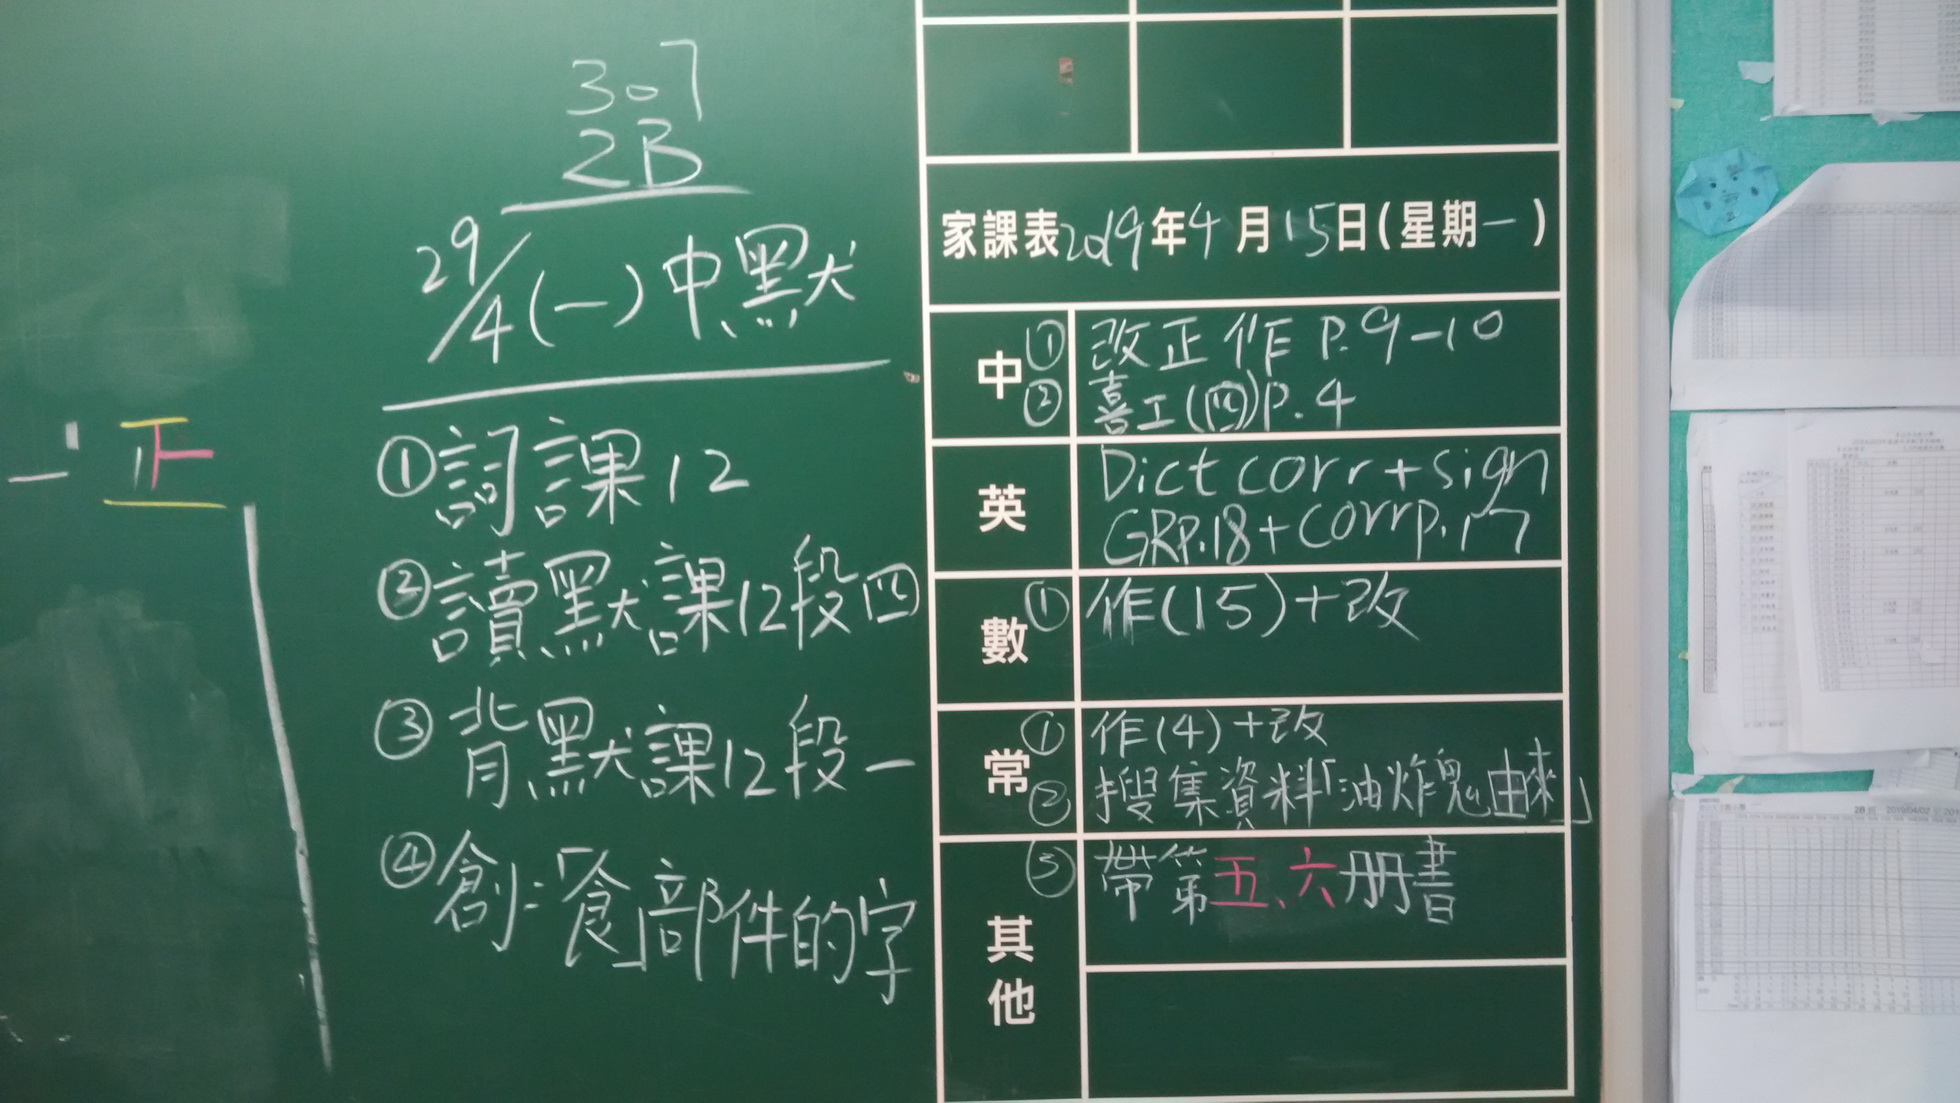 307
2B
29/4(一)中默
①詞課12
②讀默課12段四
③背默課12段一
④創:「飠」部件的字
正
家課表2019年4月15日(星期一)
中
①改正作P.9-10
②喜工(四)P.4
英
Dict corr+sign
GRP.18+corrp.17
數
①作(15)+改
常
①作(4)+改
②搜集資料「油炸鬼由來」
其他
③帶第五、六册書